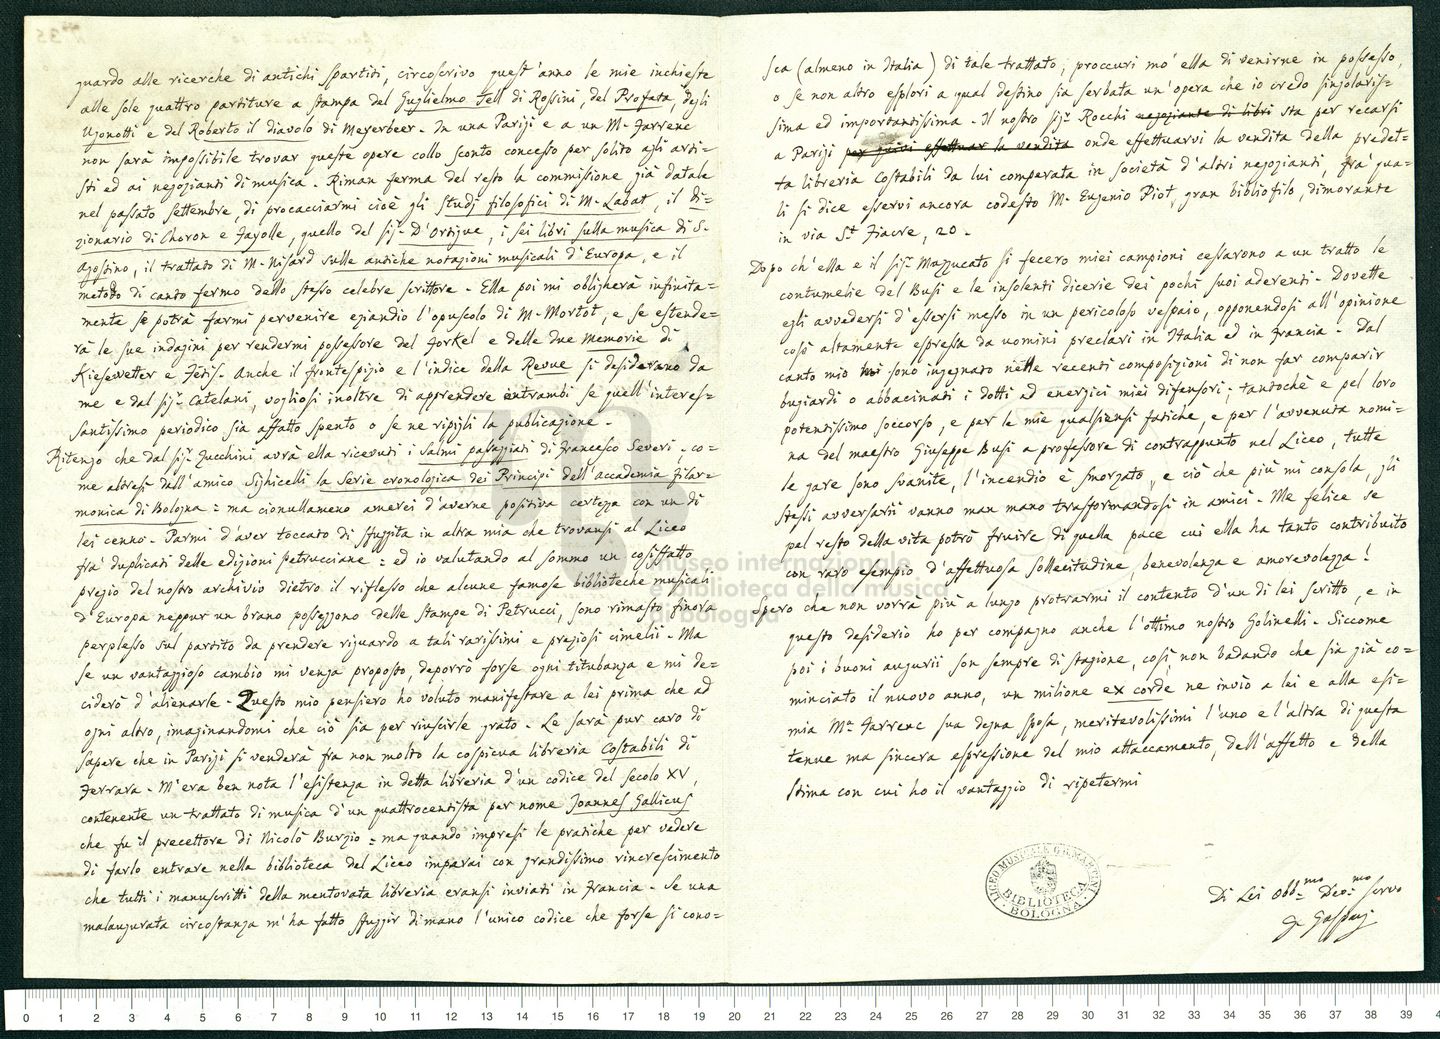 guardo alle ricerche di antichi spartiti, circoscrivo quest'anno le mie inchieste
alle sole quattro partiture a stampa del Guglielmo Tell di Rossini, del Profeta, degli
Ugonotti e del Roberto il diavolo di Meyerbeer. In una Parigi e a un M. Farrenc
non sarà impossibile trovar queste opere collo sconto concesso per solito agli arti=
sti ed ai negozianti di musica. Riman ferma del resto la commissione già datale
nel passato settembre, di procacciarmi cioè gli Studj filosofici di M. Labat, il di=
zionario di Choron e Fayolle, quello del sig.r D'Ortigue, i sei libri sulla musica di S.
Agostino, il trattato di M. Nisard sulle antiche notazioni musicali d'Europa, e il
metodo di canto fermo dello stesso celebre scrittore. Ella poi mi obligherà infinita=
mente se potrà farmi pervenire eziandio l'opuscolo di M. Mortot, e se estende=
rà le sue indagini per rendermi possessore del Forkel e delle due Memorie di
Kiesewetter e Fétis. Anche il frontespizio e l'indice della Revue si desiderano da
me e dal sig.r Catelani, vogliosi inoltre di apprendere entrambi se quell'interes=
santissimo periodico sia affatto spento o se ne ripigli la publicazione.
Ritengo che dal sig.r Zucchini avrà ella ricevuti i Salmi passaggiati di Francesco Severi, co=
me altresì dall'amico Sighicelli la Serie cronologica dei Principi dell'Accademia Filar=
monica di Bologna = ma cionullameno amerei d'averne positiva certezza con un di
lei cenno. Parmi d'aver toccato di sfuggita in altra mia che trovansi al Liceo
fra' duplicati delle edizioni petrucciane = ed io valutando al sommo un cosiffatto
pregio del nostro archivio dietro il riflesso che alcune famose biblioteche musicali
d'Europa neppur un brano posseggono delle stampe di Petrucci, sono rimasto finora
perplesso sul partito da prendere riguardo a tali rarissimi e preziosi cimelii. Ma
se un vantaggioso cambio mi venga proposto, deporrò forse ogni titubanza e mi de=
ciderò d'alienarle. Questo mio pensiero ho voluto manifestare a lei prima che ad
ogni altro, imaginandomi che ciò sia per riuscirle grato. Le sarà pur caro di
sapere che in Parigi si venderà fra non molto la cospicua libreria Costabili di
Ferrara. M'era ben nota l'esistenza in detta libreria d'un codice del secolo XV,
contenente un trattato di musica d'un quattrocentista per nome Joannes Gallicus
che fu il precettore di Nicolò Burzio = ma quando impresi le pratiche per vedere
di farlo entrare nella biblioteca del Liceo imparai con grandissimo rincrescimento
che tutti i manuscritti della mentovata libreria eransi inviati in Francia. Se una
malaugurata circostanza m'ha fatto sfuggir di mano l'unico codice che forse si cono=
sca (almeno in Italia) di tale trattato, proccuri mo' ella di venirne in possesso,
o se non altro esplori a qual destino sia serbata un'opera che io credo singolaris=
sima ed importantissima. Il nostro sig.r Rocchi negoziante di libri sta per recarsi
a Parigi per quivi effettuar la vendita onde effettuarvi la vendita della predet=
ta libreria Costabili da lui comparata in società d'altri negozianti, fra' qua=
li si dice esservi ancora codesto M. Eugenio Piot, gran bibliofilo, dimorante
in via S.t Fiacre, 20.
Dopo ch'ella e il sig.r Mazzucato si fecero miei campioni cessarono a un tratto le
contumelie del Busi e le insolenti dicerie dei pochi suoi aderenti. Dovette
egli avvedersi d'essersi messo in un pericoloso vespaio, opponendosi all'opinione
così altamente espressa da uomini preclari in Italia ed in Francia. Dal
canto mio mi sono ingegnato nelle recenti composizioni di non far comparir
bugiardi o abbacinati i dotti ed energici miei difensori; tantochè e pel loro
potentissimo soccorso, e per le mie qualsiensi fatiche, e per l'avvenuta nomi=
na del maestro Giuseppe Busi a professore di contrappunto nel Liceo, tutte
le gare sono svanite, l'incendio è smorzato, e ciò che più mi consola, gli
stessi avversarii vanno man mano trasformandosi in amici. Me felice se
pel resto della vita potrò fruire di quella pace cui ella ha tanto contribuito
con raro esempio d'affettuosa sollecitudine, benevolenza e amorevolezza!
Spero che non vorrà più a lungo protrarmi il contento d'un di lei scritto, e in
questo desiderio ho per compagno anche l'ottimo nostro Golinelli. Siccome
poi i buoni augurii son sempre di stagione, così, non badando che sia già co=
minciato il nuovo anno, un milione ex corde ne invio a lei e alla esi=
mia M.a Farrenc sua degna sposa, meritevolissimi l'uno e l'altra di questa
tenue ma sincera espressione del mio attaccamento, dell'affetto e della
stima con cui ho il vantaggio di ripetermi
Di Lei Obb.mo Dev.mo Servo
G. Gaspari
LICEO MUSICALE G.B. MARTINI
BIBLIOTECA
BOLOGNA
museo internazionale
e biblioteca della musica
di bologna
0 1 2 3 4 5 6 7 8 9 10 11 12 13 14 15 16 17 18 19 20 21 22 23 24 25 26 27 28 29 30 31 32 33 34 35 36 37 38 39